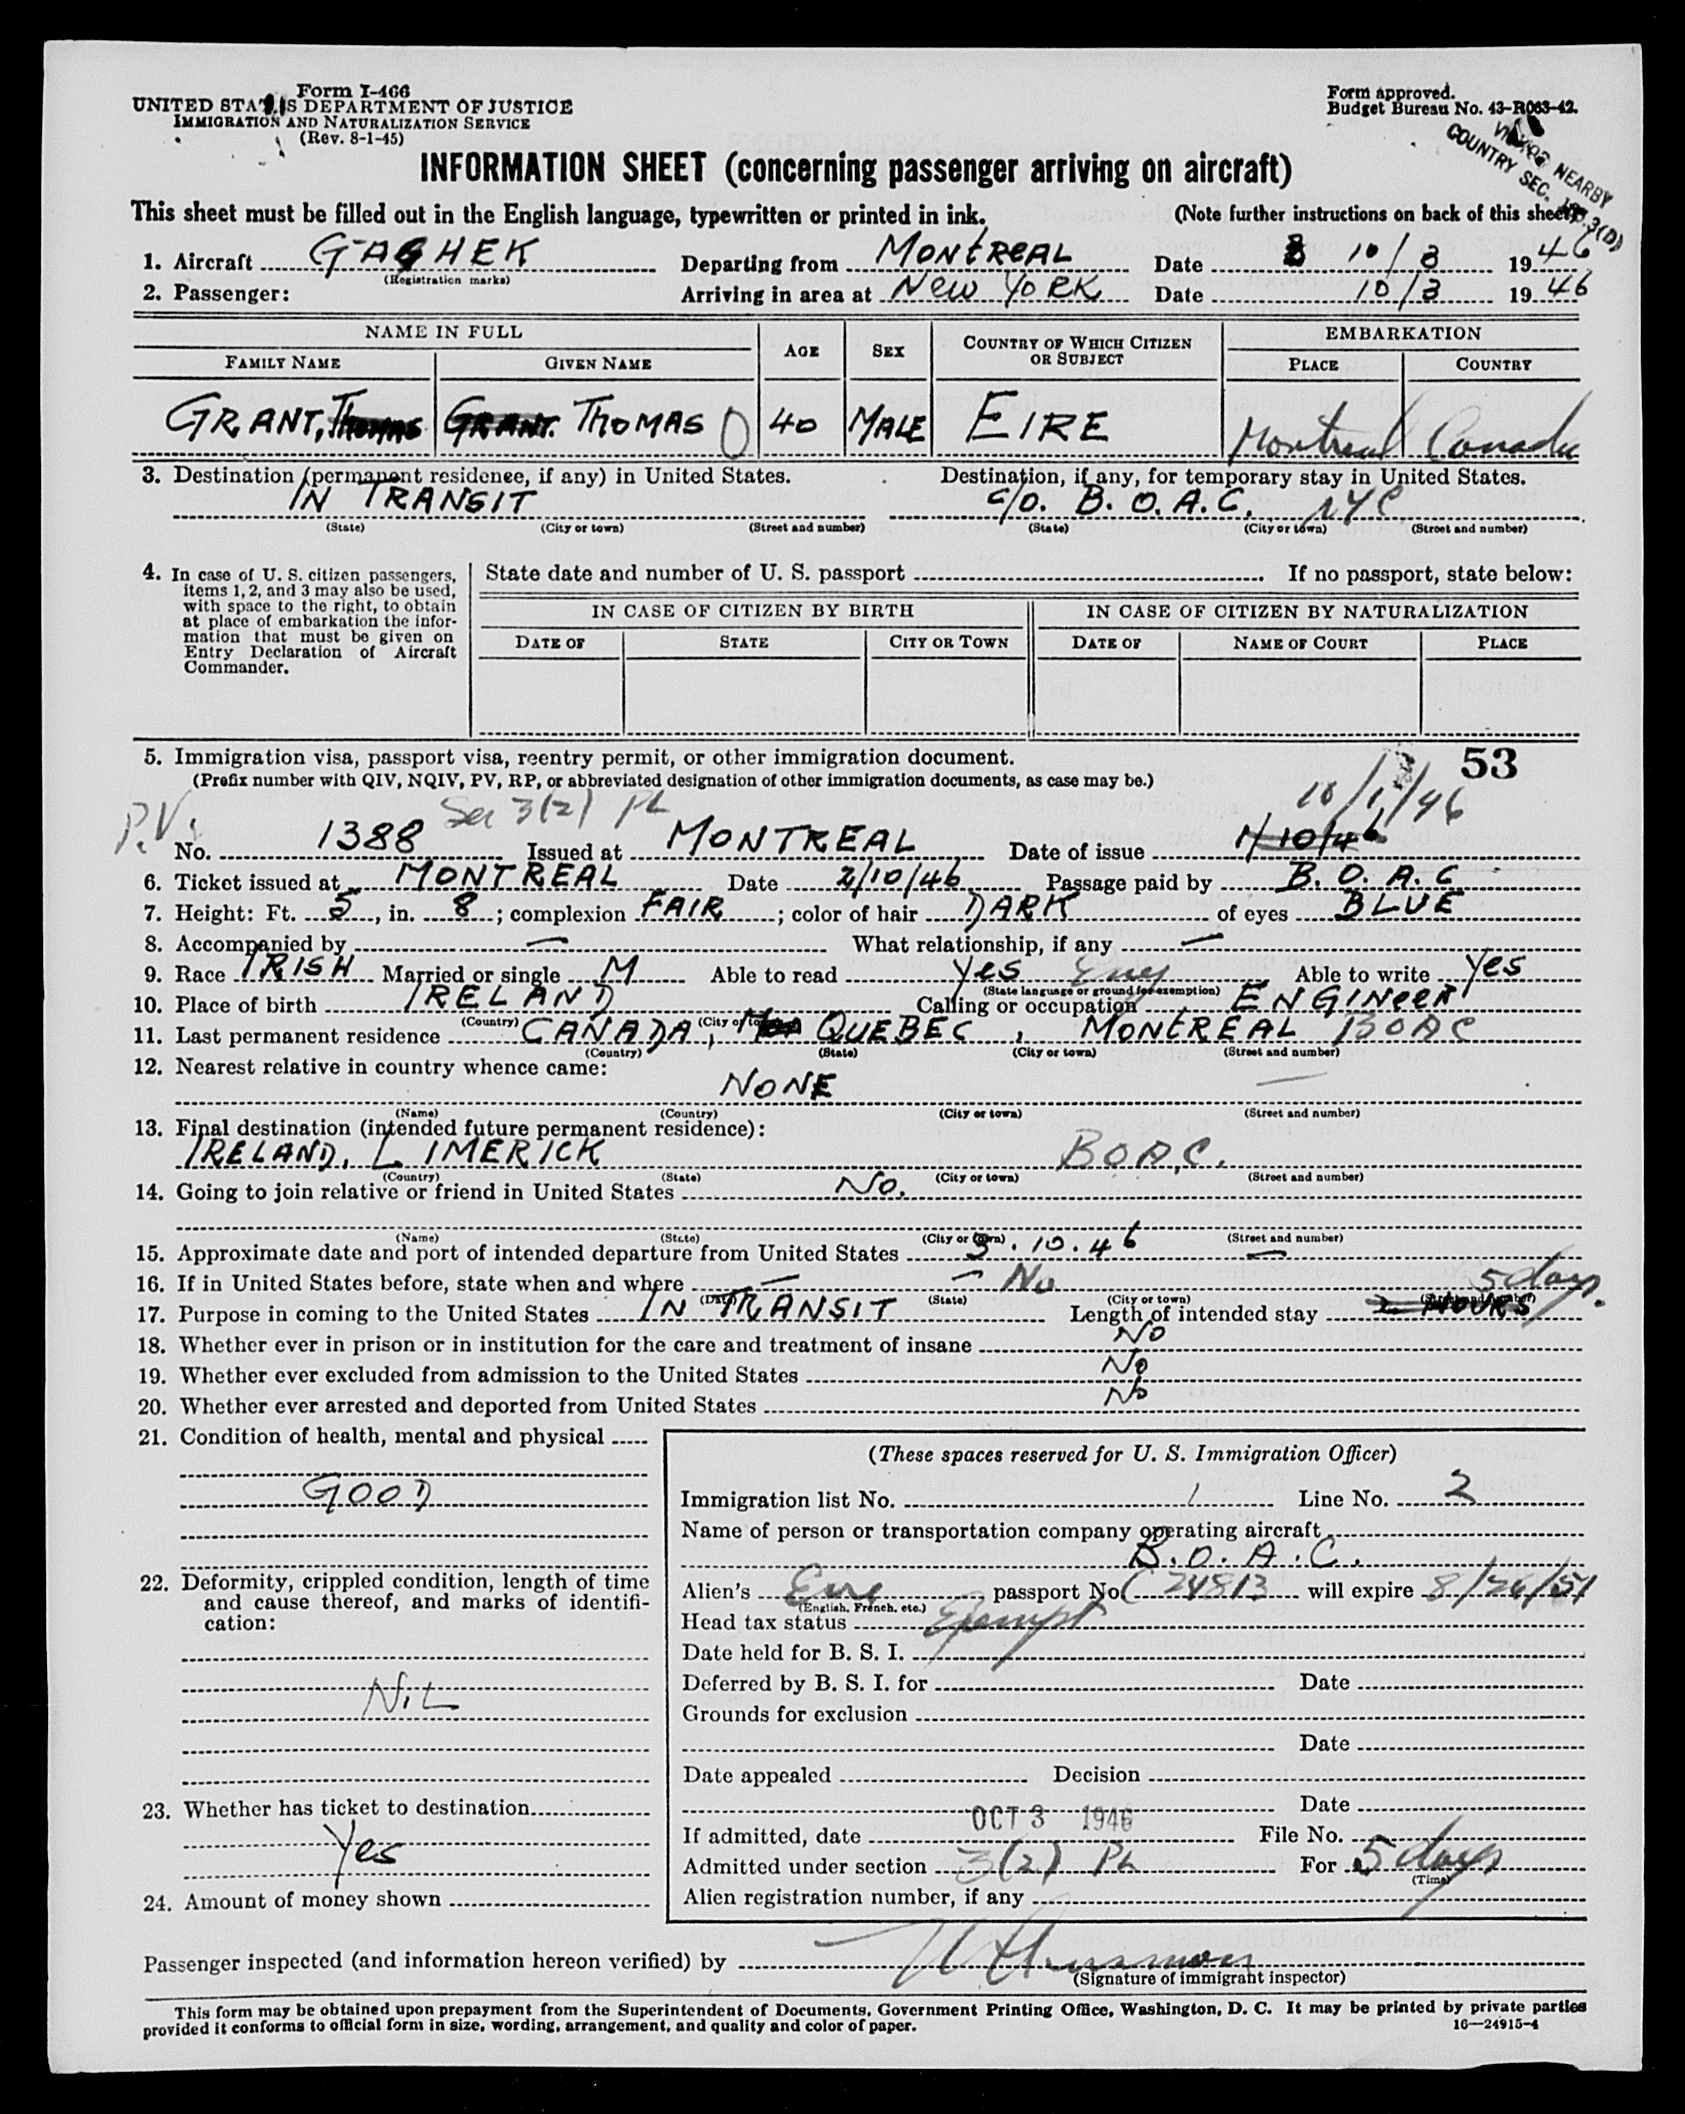 Form I-466
UNITED STATES DEPARTMENT OF JUSTICE
IMMIGRATION AND NATURALIZATION SERVICE
(Rev. 8-1-45)
Form approved.
Budget Bureau No. 43-R063-42.
NEARBY
COUNTRY SEC. 3(D)
INFORMATION SHEET (concerning passenger arriving on aircraft)
This sheet must be filled out in the English language, typewritten or printed in ink. (Note further instructions on back of this sheet)
1. Aircraft GAGHEK Departing from MONTREAL Date 10/3 1946
(Registration marks)
2. Passenger: Arriving in area at NEW YORK Date 10/3 1946
NAME IN FULL AGE SEX COUNTRY OF WHICH CITIZEN OR SUBJECT EMBARKATION
FAMILY NAME GIVEN NAME PLACE COUNTRY
GRANT, THOMAS GRANT. THOMAS 40 MALE EIRE Montreal Canada
3. Destination (permanent residence, if any) in United States. Destination, if any, for temporary stay in United States.
IN TRANSIT c/o. B.O.A.C. NYC
(State) (City or town) (Street and number) (State) (City or town) (Street and number)
4. In case of U. S. citizen passengers, items 1, 2, and 3 may also be used, with space to the right, to obtain at place of embarkation the information that must be given on Entry Declaration of Aircraft Commander.
State date and number of U. S. passport If no passport, state below:
IN CASE OF CITIZEN BY BIRTH IN CASE OF CITIZEN BY NATURALIZATION
DATE OF STATE CITY OR TOWN DATE OF NAME OF COURT PLACE
5. Immigration visa, passport visa, reentry permit, or other immigration document. 53
(Prefix number with QIV, NQIV, PV, RP, or abbreviated designation of other immigration documents, as case may be.)
P.V. Sec 3(2) PL 10/1/46
No. 1388 Issued at MONTREAL Date of issue 1/10/46
6. Ticket issued at MONTREAL Date 2/10/46 Passage paid by B.O.A.C
7. Height: Ft. 5, in. 8; complexion FAIR; color of hair DARK of eyes BLUE
8. Accompanied by — What relationship, if any —
9. Race IRISH Married or single M Able to read Yes Eng Able to write Yes
(State language or ground for exemption)
10. Place of birth IRELAND Calling or occupation ENGINEER
(Country) (City or town)
11. Last permanent residence CANADA, QUEBEC, MONTREAL BOAC
(Country) (State) (City or town) (Street and number)
12. Nearest relative in country whence came:
NONE —
(Name) (Country) (City or town) (Street and number)
13. Final destination (intended future permanent residence):
IRELAND. LIMERICK BOAC.
(Country) (State) (City or town) (Street and number)
14. Going to join relative or friend in United States No.
(Name) (State) (City or town) (Street and number)
15. Approximate date and port of intended departure from United States 3.10.46 —
16. If in United States before, state when and where — — No 5 days.
(Date) (State) (City or town) (Street and number)
17. Purpose in coming to the United States IN TRANSIT Length of intended stay 2 HOURS
18. Whether ever in prison or in institution for the care and treatment of insane No
19. Whether ever excluded from admission to the United States No
20. Whether ever arrested and deported from United States No
21. Condition of health, mental and physical
GOOD
22. Deformity, crippled condition, length of time and cause thereof, and marks of identification:
NIL
23. Whether has ticket to destination
Yes
24. Amount of money shown
(These spaces reserved for U. S. Immigration Officer)
Immigration list No. 1 Line No. 2
Name of person or transportation company operating aircraft
B.O.A.C.
Alien's Eire passport No. C 24813 will expire 8/26/51
(English, French, etc.)
Head tax status Exempt
Date held for B. S. I.
Deferred by B. S. I. for Date
Grounds for exclusion
Date
Date appealed Decision
Date
If admitted, date OCT 3 1946 File No.
Admitted under section 3(2) PL For 5 days
(Time)
Alien registration number, if any
Passenger inspected (and information hereon verified) by
(Signature of immigrant inspector)
This form may be obtained upon prepayment from the Superintendent of Documents, Government Printing Office, Washington, D. C. It may be printed by private parties
provided it conforms to official form in size, wording, arrangement, and quality and color of paper. 16—24915-4